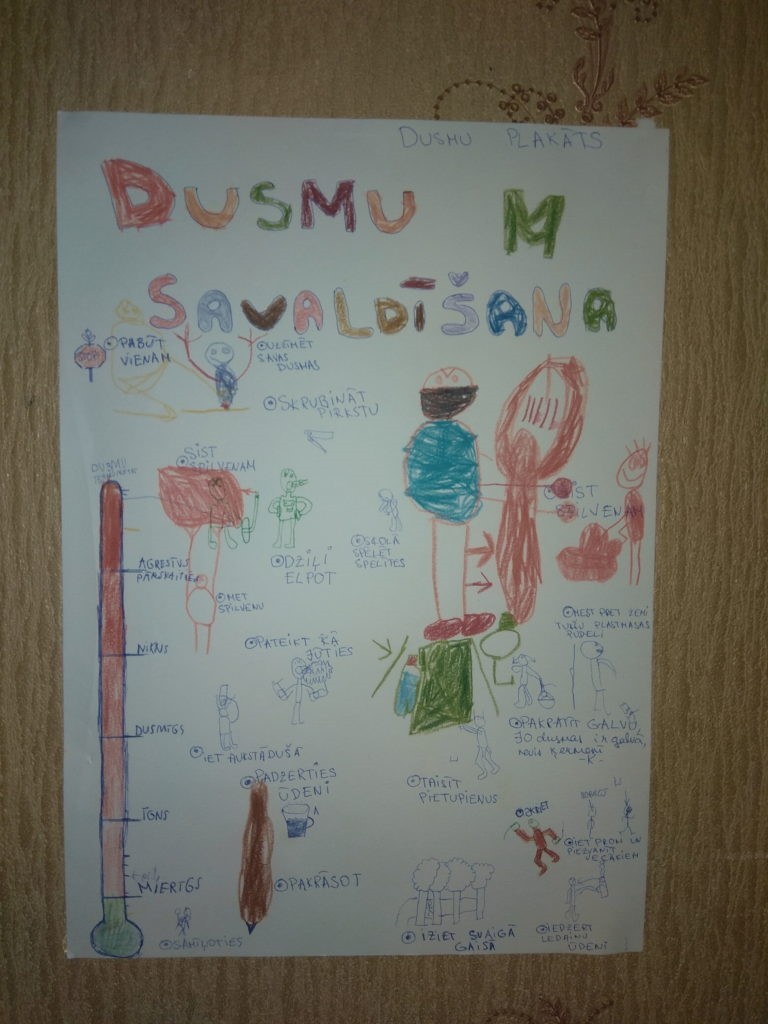 DUSMU PLAKĀTS
DUSMU M
SAVALDĪŠANA
STOP
PABŪT
VIENAM
UZĪMĒT
SAVAS
DUSMAS
SKRUBINĀT
PIRKSTU
SIST
SPILVENAM
DUSMU
SIST
DZIĻI
ELPOT
SPĒLĒT
SPĒLĪTES
AGRESĪVS
MET
SPILVENU
MEST PRET ZEMI
TUKŠU PLASTMASAS
PUDELI
PATEIKT KĀ
JŪTIES
NIKNS
PAKRATĪT GALVU,
JO dusmas ir galvā,
nevis ķermenī
-K-
DUSMĪGS
IET AUKSTĀ DUŠĀ
PADZERTIES
ŪDENI
TAISĪT
PIETUPIENUS
ĪGNS
IET PROM UN
PIEZVANĪT
VECĀKIEM
MIERĪGS
PAKRĀSOT
SAMĪĻOTIES
IZIET SVAIGĀ
GAISĀ
IEDZERT
LEDAINU
ŪDENI